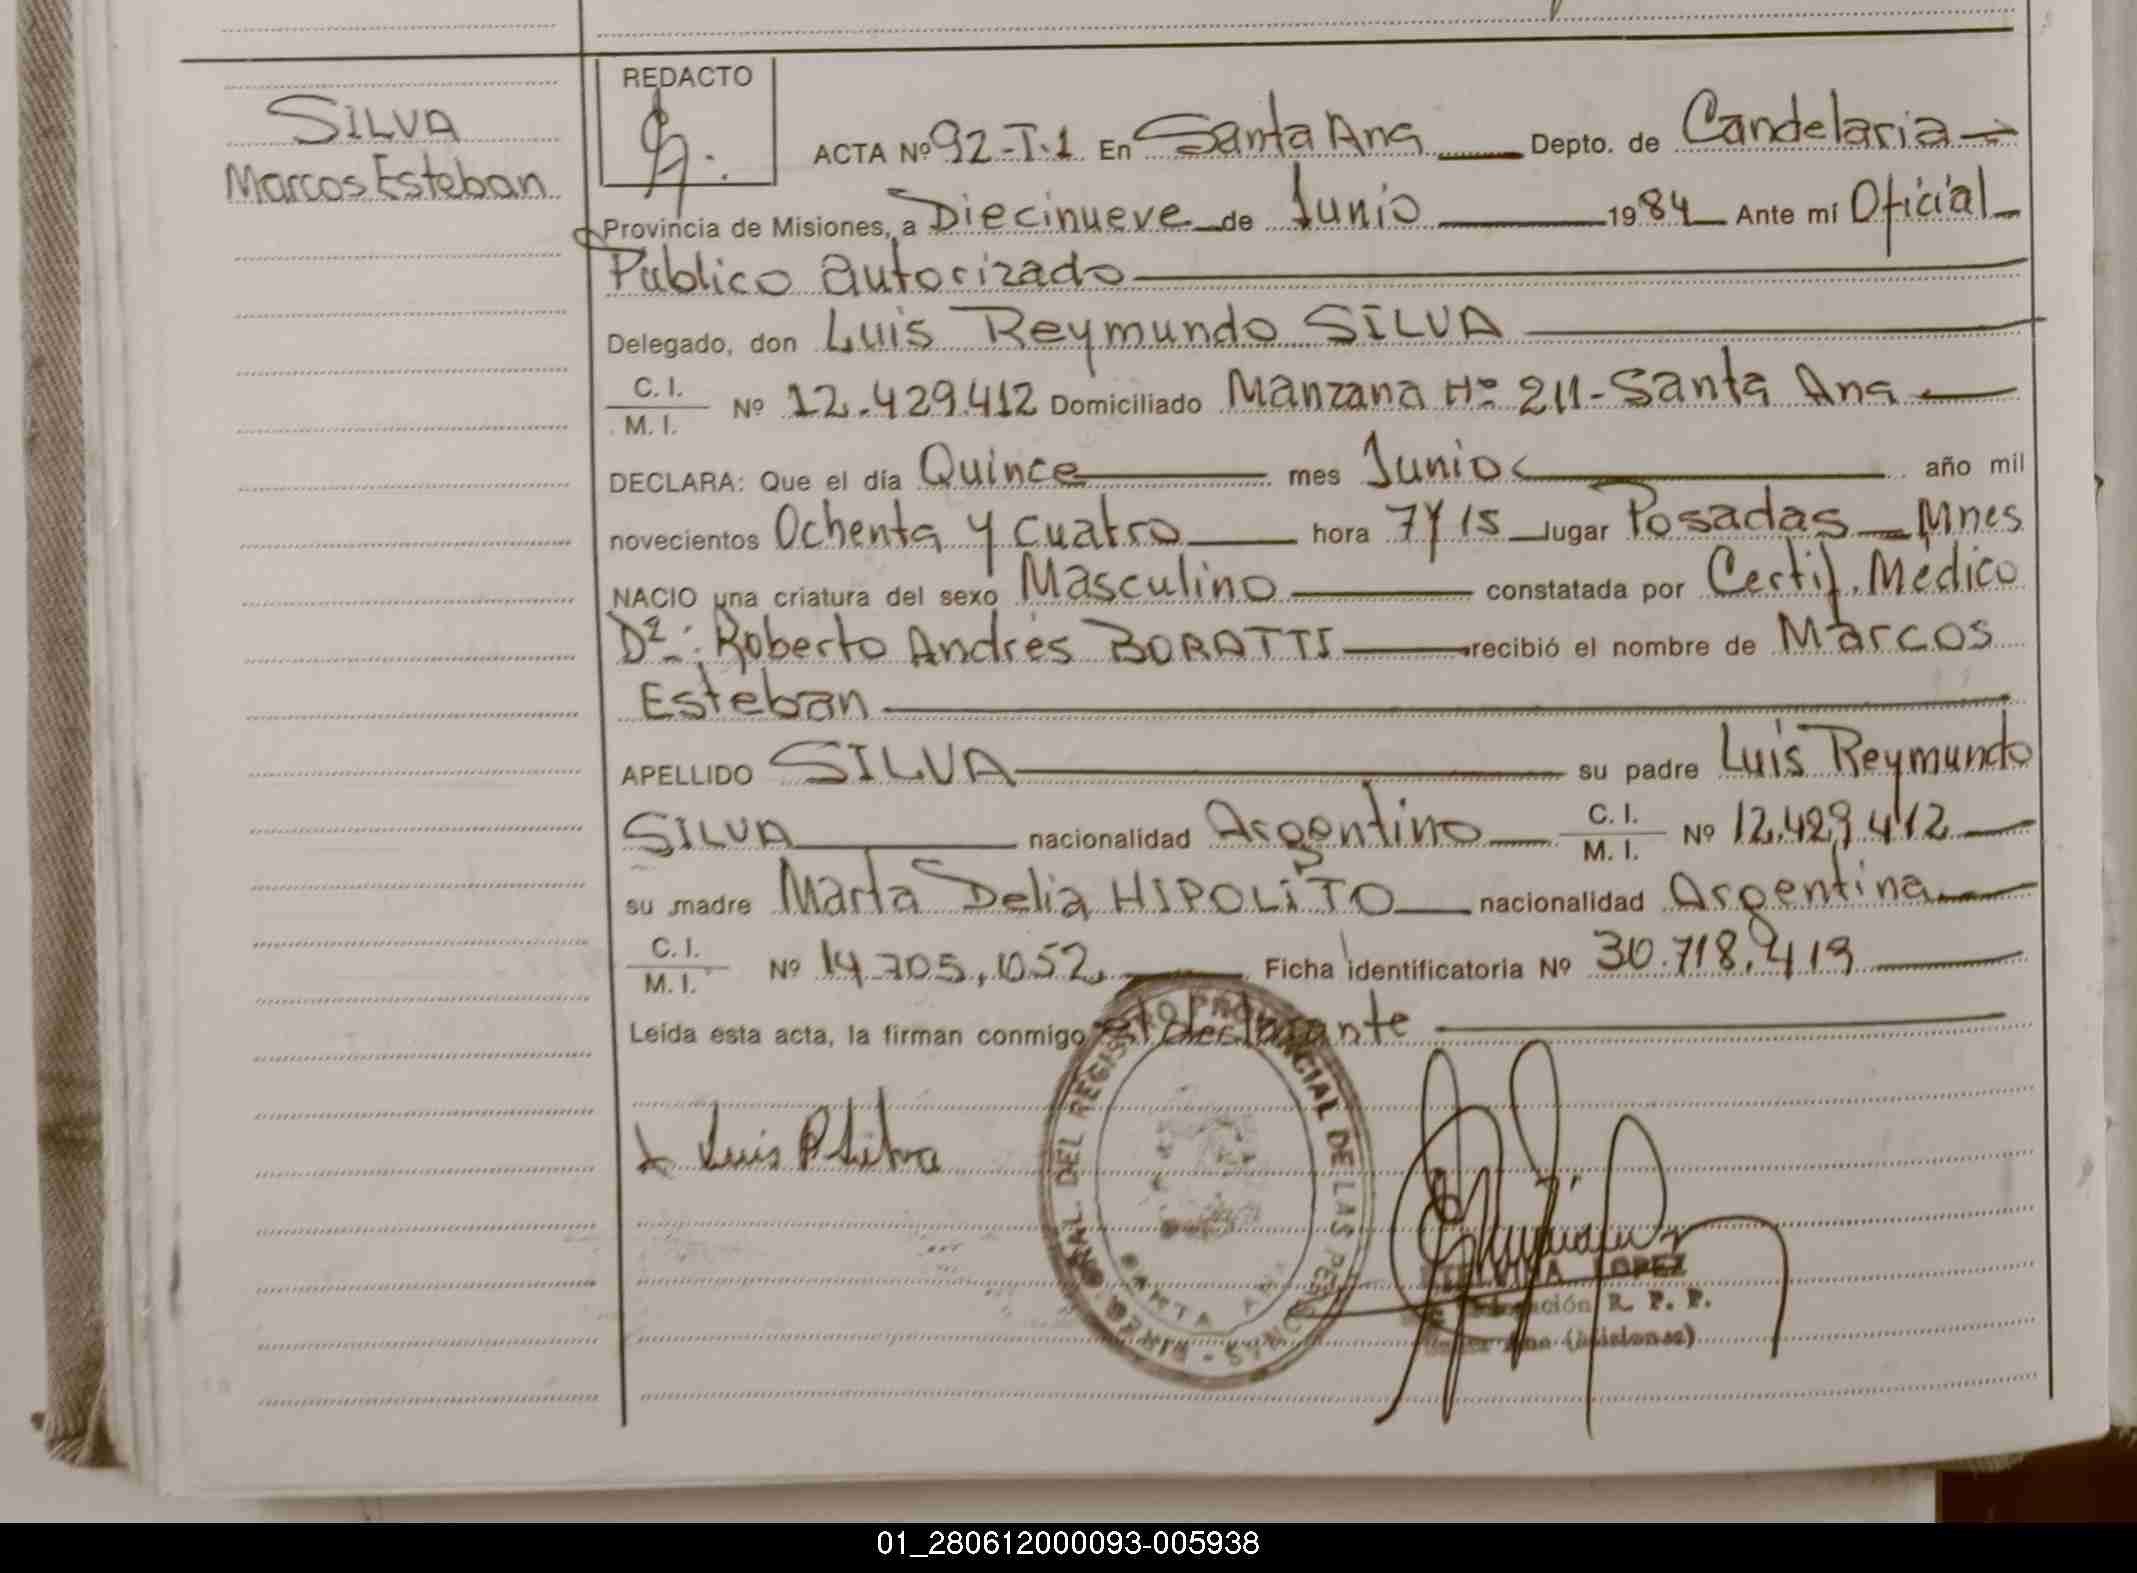 SILVA
Marcos Esteban
REDACTO
ACTA Nº 92-T.1 En Santa Ana Depto. de Candelaria
Provincia de Misiones, a Diecinueve de Junio 1984 Ante mí Oficial
Público autorizado
Delegado, don Luis Reymundo SILVA
C. I.
M. I.
Nº 12.429.412 Domiciliado Manzana Nº 211-Santa Ana
DECLARA: Que el día Quince mes Junio año mil
novecientos Ochenta y cuatro hora 7y15 lugar Posadas Mnes
NACIO una criatura del sexo Masculino constatada por Certif. Médico
Dr: Roberto Andrés BORATTI recibió el nombre de Marcos
Esteban
APELLIDO SILVA su padre Luis Reymundo
SILVA nacionalidad Argentino C. I. M. I. Nº 12.429.412
su madre Marta Delia HIPOLITO nacionalidad Argentina
C. I.
M. I.
Nº 14.705.052 Ficha identificatoria Nº 30.718.419
Leída esta acta, la firman conmigo el declarante
Luis R Silva
GRAL. DEL REGISTRO PROVINCIAL DE LAS PERSONAS
SANTA ANA
LOPEZ
R. P. P.
Ana (Misiones)
01_280612000093-005938